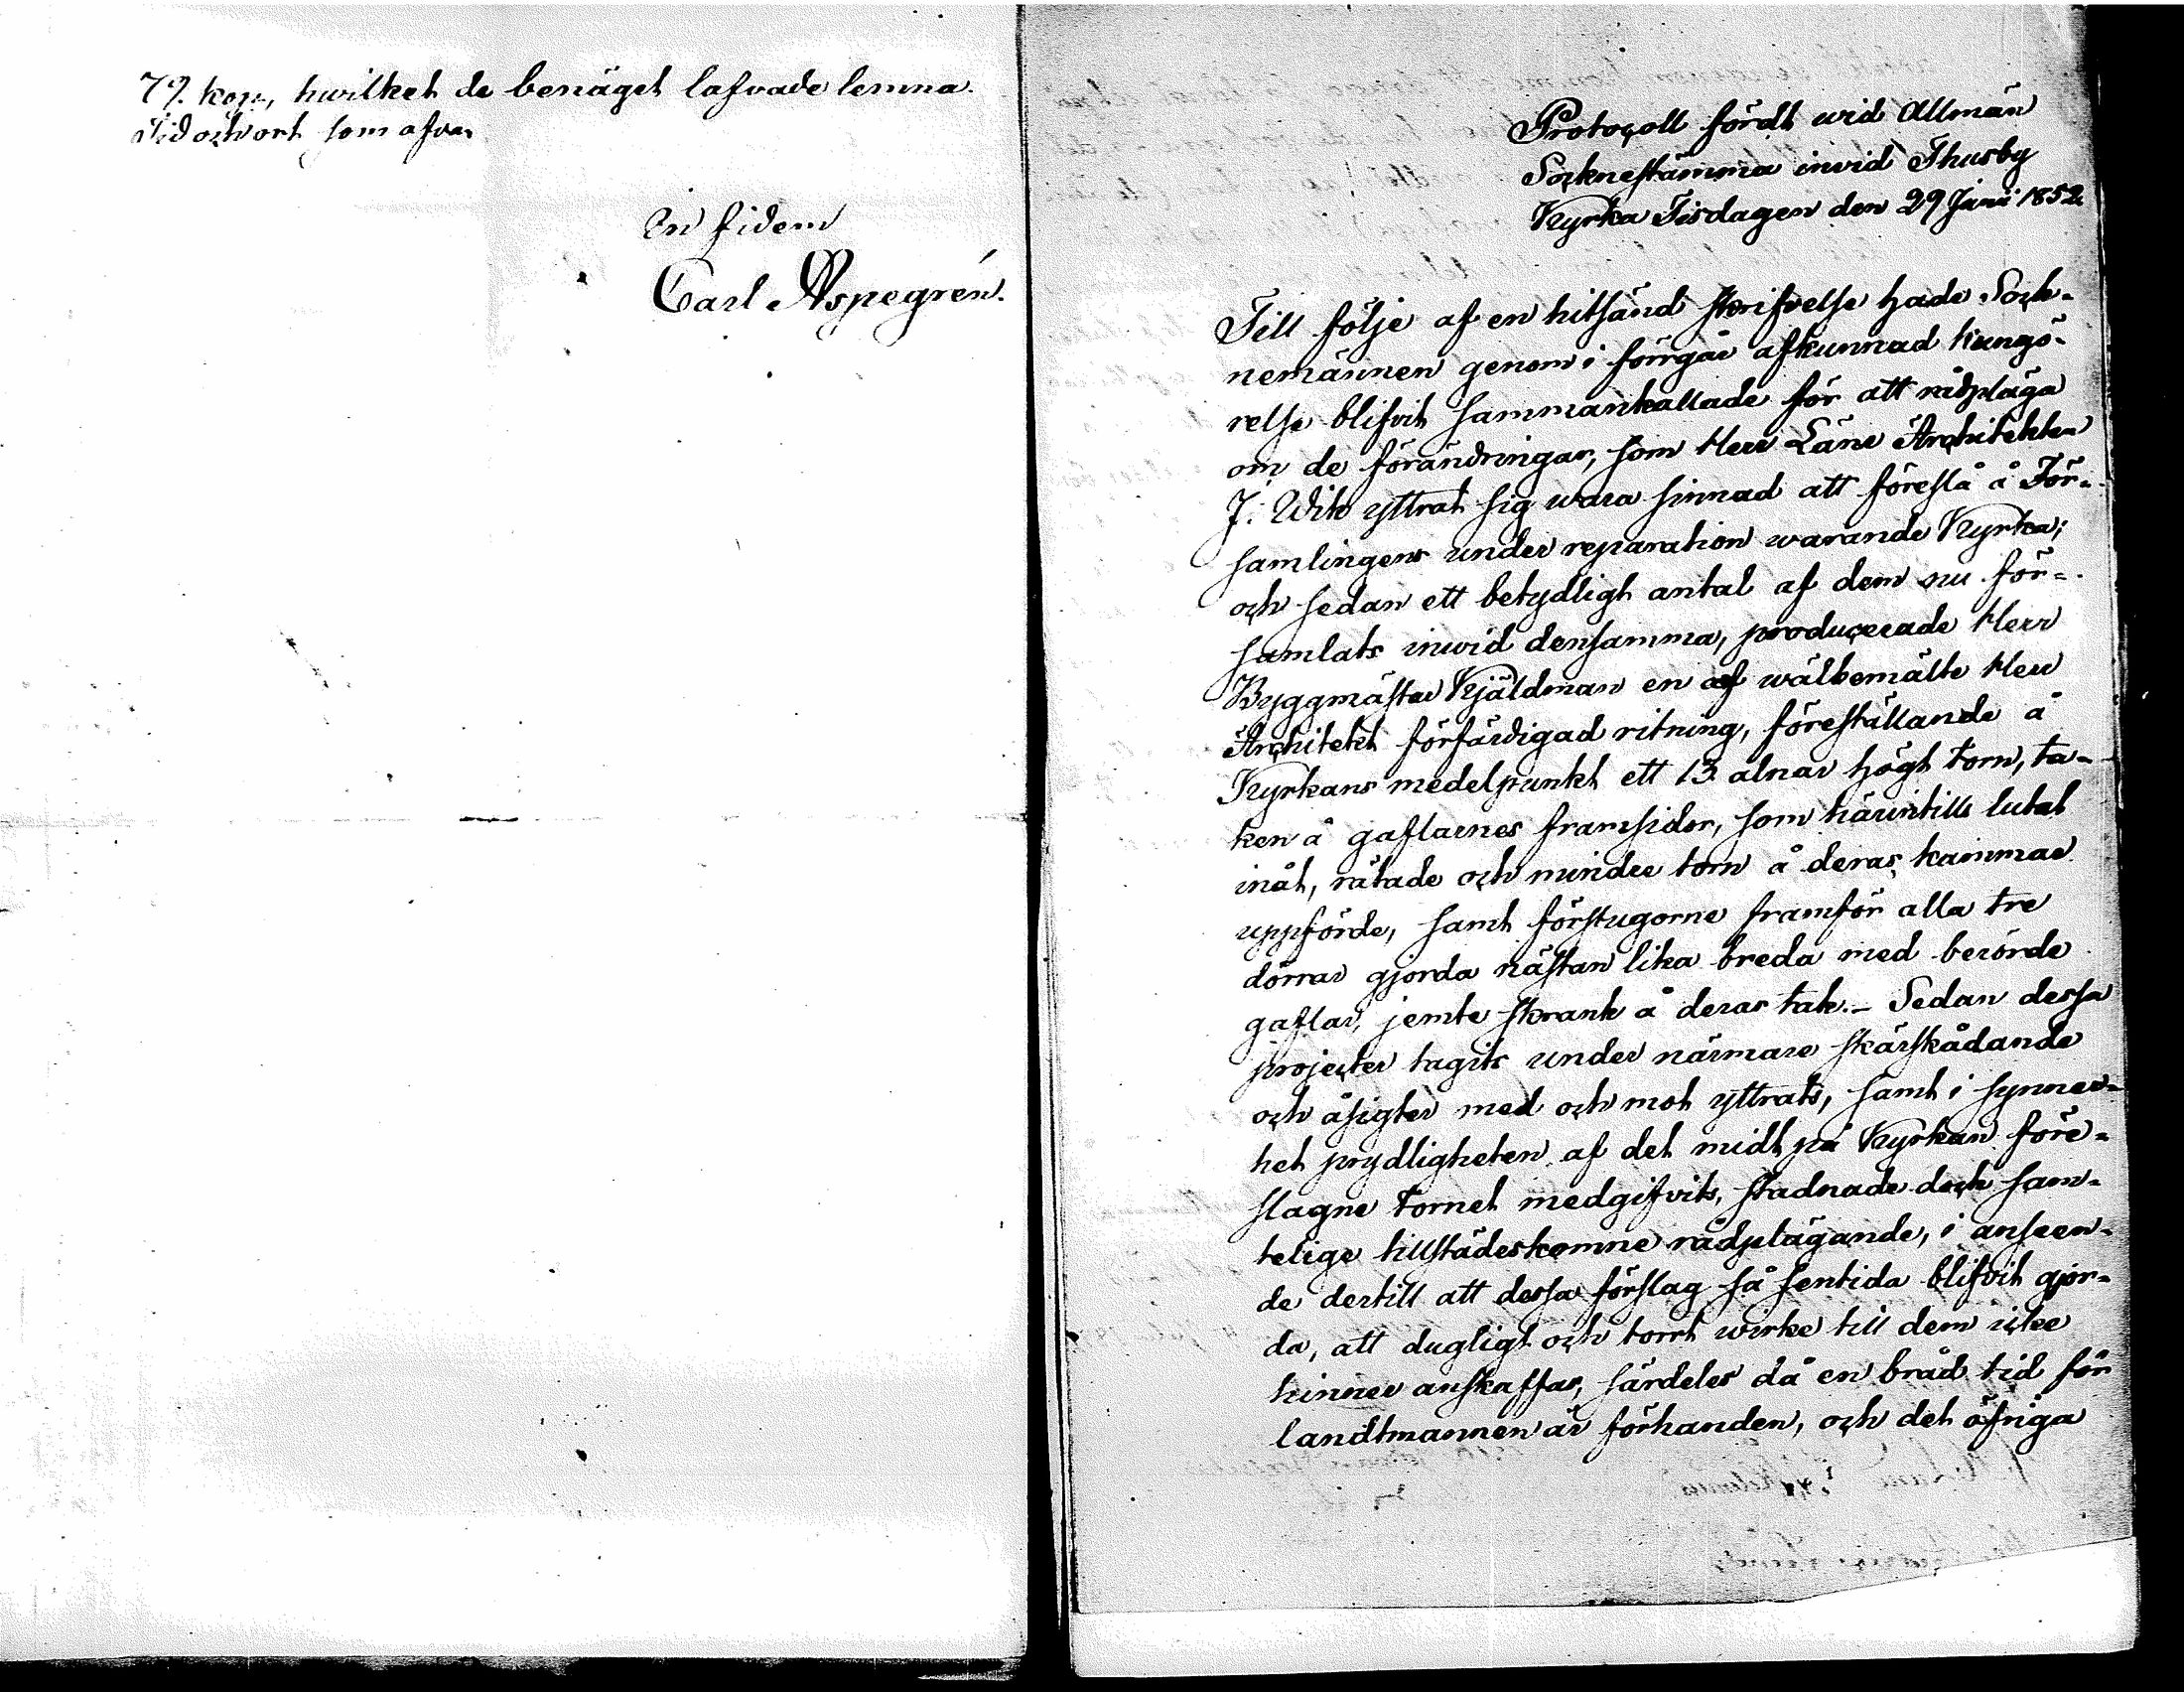 79. kop, hwilket de benäget lofvade lemna.
Tid och ort som ofvan
In fidem
Carl Aspegrén.
Protocoll fördt wid Allmän
Socknestämma inwid Thusby
Kyrka Tisdagen den 29 Junii 1852
Till följe af en hitsänd skrifvelse hade Sock-
nemännen genom i förrgår afkunnad kungö-
relse blifvit sammankallade för att rådpläga
om de förändringar, som Herr Läns Architekten
J. Wik yttrat sig wara sinnad att föreslå å För-
samlingens under reparation warande Kyrka;
och sedan ett betydligt antal af dem nu för-
samlats inwid densamma, producerade Herr
Byggmästar Kjäldman en af wälbemälte Herr
Architekt förfärdigad ritning, föreställande å
Kyrkans medelpunkt ett 13 alnar högt torn, ta-
ken å gaflarnes framsidor, som härintills lutat
inåt, rätade och mindre torn å deras kammar
uppförde, samt förstugorne framför alla tre
dörrar gjorda nästan lika breda med berörde
gaflar, jemte skrank å deras tak. - Sedan dessa
projecter tagits under närmare skärskådande
och åsigter med och mot yttrats, samt i synner-
het prydligheten af det midt på Kyrkan före-
slagne tornet medgifvits, stadnade dock sam-
telige tillstädeskomne rådplägande, i anseen-
de dertill att dessa förslag så sentida blifvit gjor-
da, att dugligt och torrt wirke till dem icke
hinner anskaffas, särdeles då en bråd tid för
landtmannen är förhanden, och det öfriga